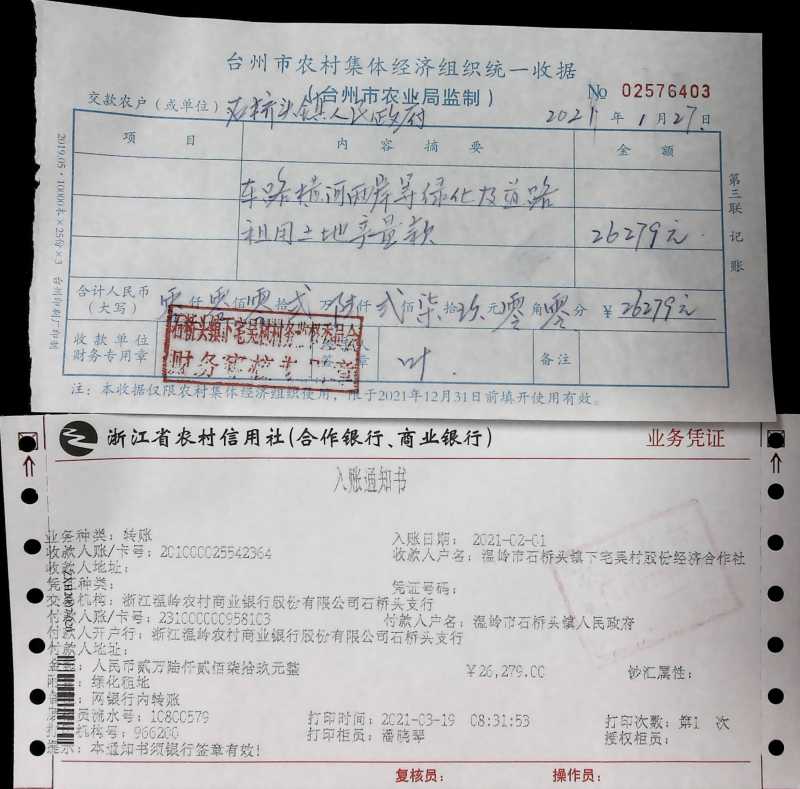 台州市农村集体经济组织统一收据
(台州市农业局监制)
No 02576403
交款农户(或单位) 石桥头镇人民政府 2021年1月27日
项目 内容摘要 金额
车路横河两岸等绿化及道路
租用土地产量款 26279元
合计人民币(大写) 零仟零佰零拾贰万陆仟贰佰柒拾玖元零角零分 ¥26279元
收款单位财务专用章
叶
备注
石桥头镇下宅吴村村务监督委员会
财务审核专用章
注:本收据仅限农村集体经济组织使用,限于2021年12月31日前填开使用有效。
第三联 记账
2019.05·10000本×25份×3 台州印刷厂印制
浙江省农村信用社(合作银行、商业银行) 业务凭证
入账通知书
业务种类:转账 入账日期: 2021-02-01
收款人账/卡号:201000025542364 收款人户名:温岭市石桥头镇下宅吴村股份经济合作社
收款人地址:
凭证种类: 凭证号码:
交易机构:浙江温岭农村商业银行股份有限公司石桥头支行
付款人账/卡号:231000000958103 付款人户名:温岭市石桥头镇人民政府
付款人开户行:浙江温岭农村商业银行股份有限公司石桥头支行
付款人地址:
金额:人民币贰万陆仟贰佰柒拾玖元整 ¥26,279.00 钞汇属性:
绿化租地
网银行内转账
流水号:10800579 打印时间:2021-03-19 08:31:53 打印次数:第1 次
打印机构号:966200 打印柜员:潘晓琴 授权柜员:
提示:本通知书须银行签章有效!
复核员: 操作员: